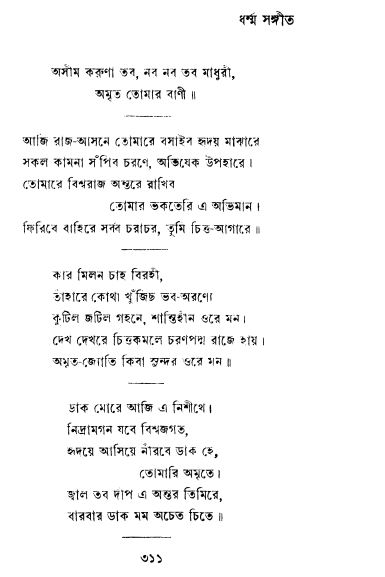 ধর্ম্ম সঙ্গীত
অসীম করুণা তব, নব নব তব মাধুরী,
অমৃত তোমার বাণী ॥
আজি রাজ-আসনে তোমারে বসাইব হৃদয় মাঝারে
সকল কামনা সঁপিব চরণে, অভিষেক উপহারে।
তোমারে বিশ্বরাজ অন্তরে রাখিব
তোমার ভকতেরি এ অভিমান।
ফিরিবে বাহিরে সর্ব্ব চরাচর, তুমি চিত্ত-আগারে ॥
কার মিলন চাহ বিরহী,
তাহারে কোথা খুঁজিছ ভব-অরণ্যে
কুটিল জটিল গহনে, শান্তিহীন ওরে মন।
দেখ দেখরে চিত্তকমলে চরণপদ্ম রাজে হায়।
অমৃত-জ্যোতি কিবা সুন্দর ওরে মন ॥
ডাক মোরে আজি এ নিশীথে।
নিদ্রামগন যবে বিশ্বজগত,
হৃদয়ে আসিয়ে নীরবে ডাক হে,
তোমারি অমৃতে।
জ্বাল তব দীপ এ অন্তর তিমিরে,
বারবার ডাক মম অচেত চিতে ॥
৩১১